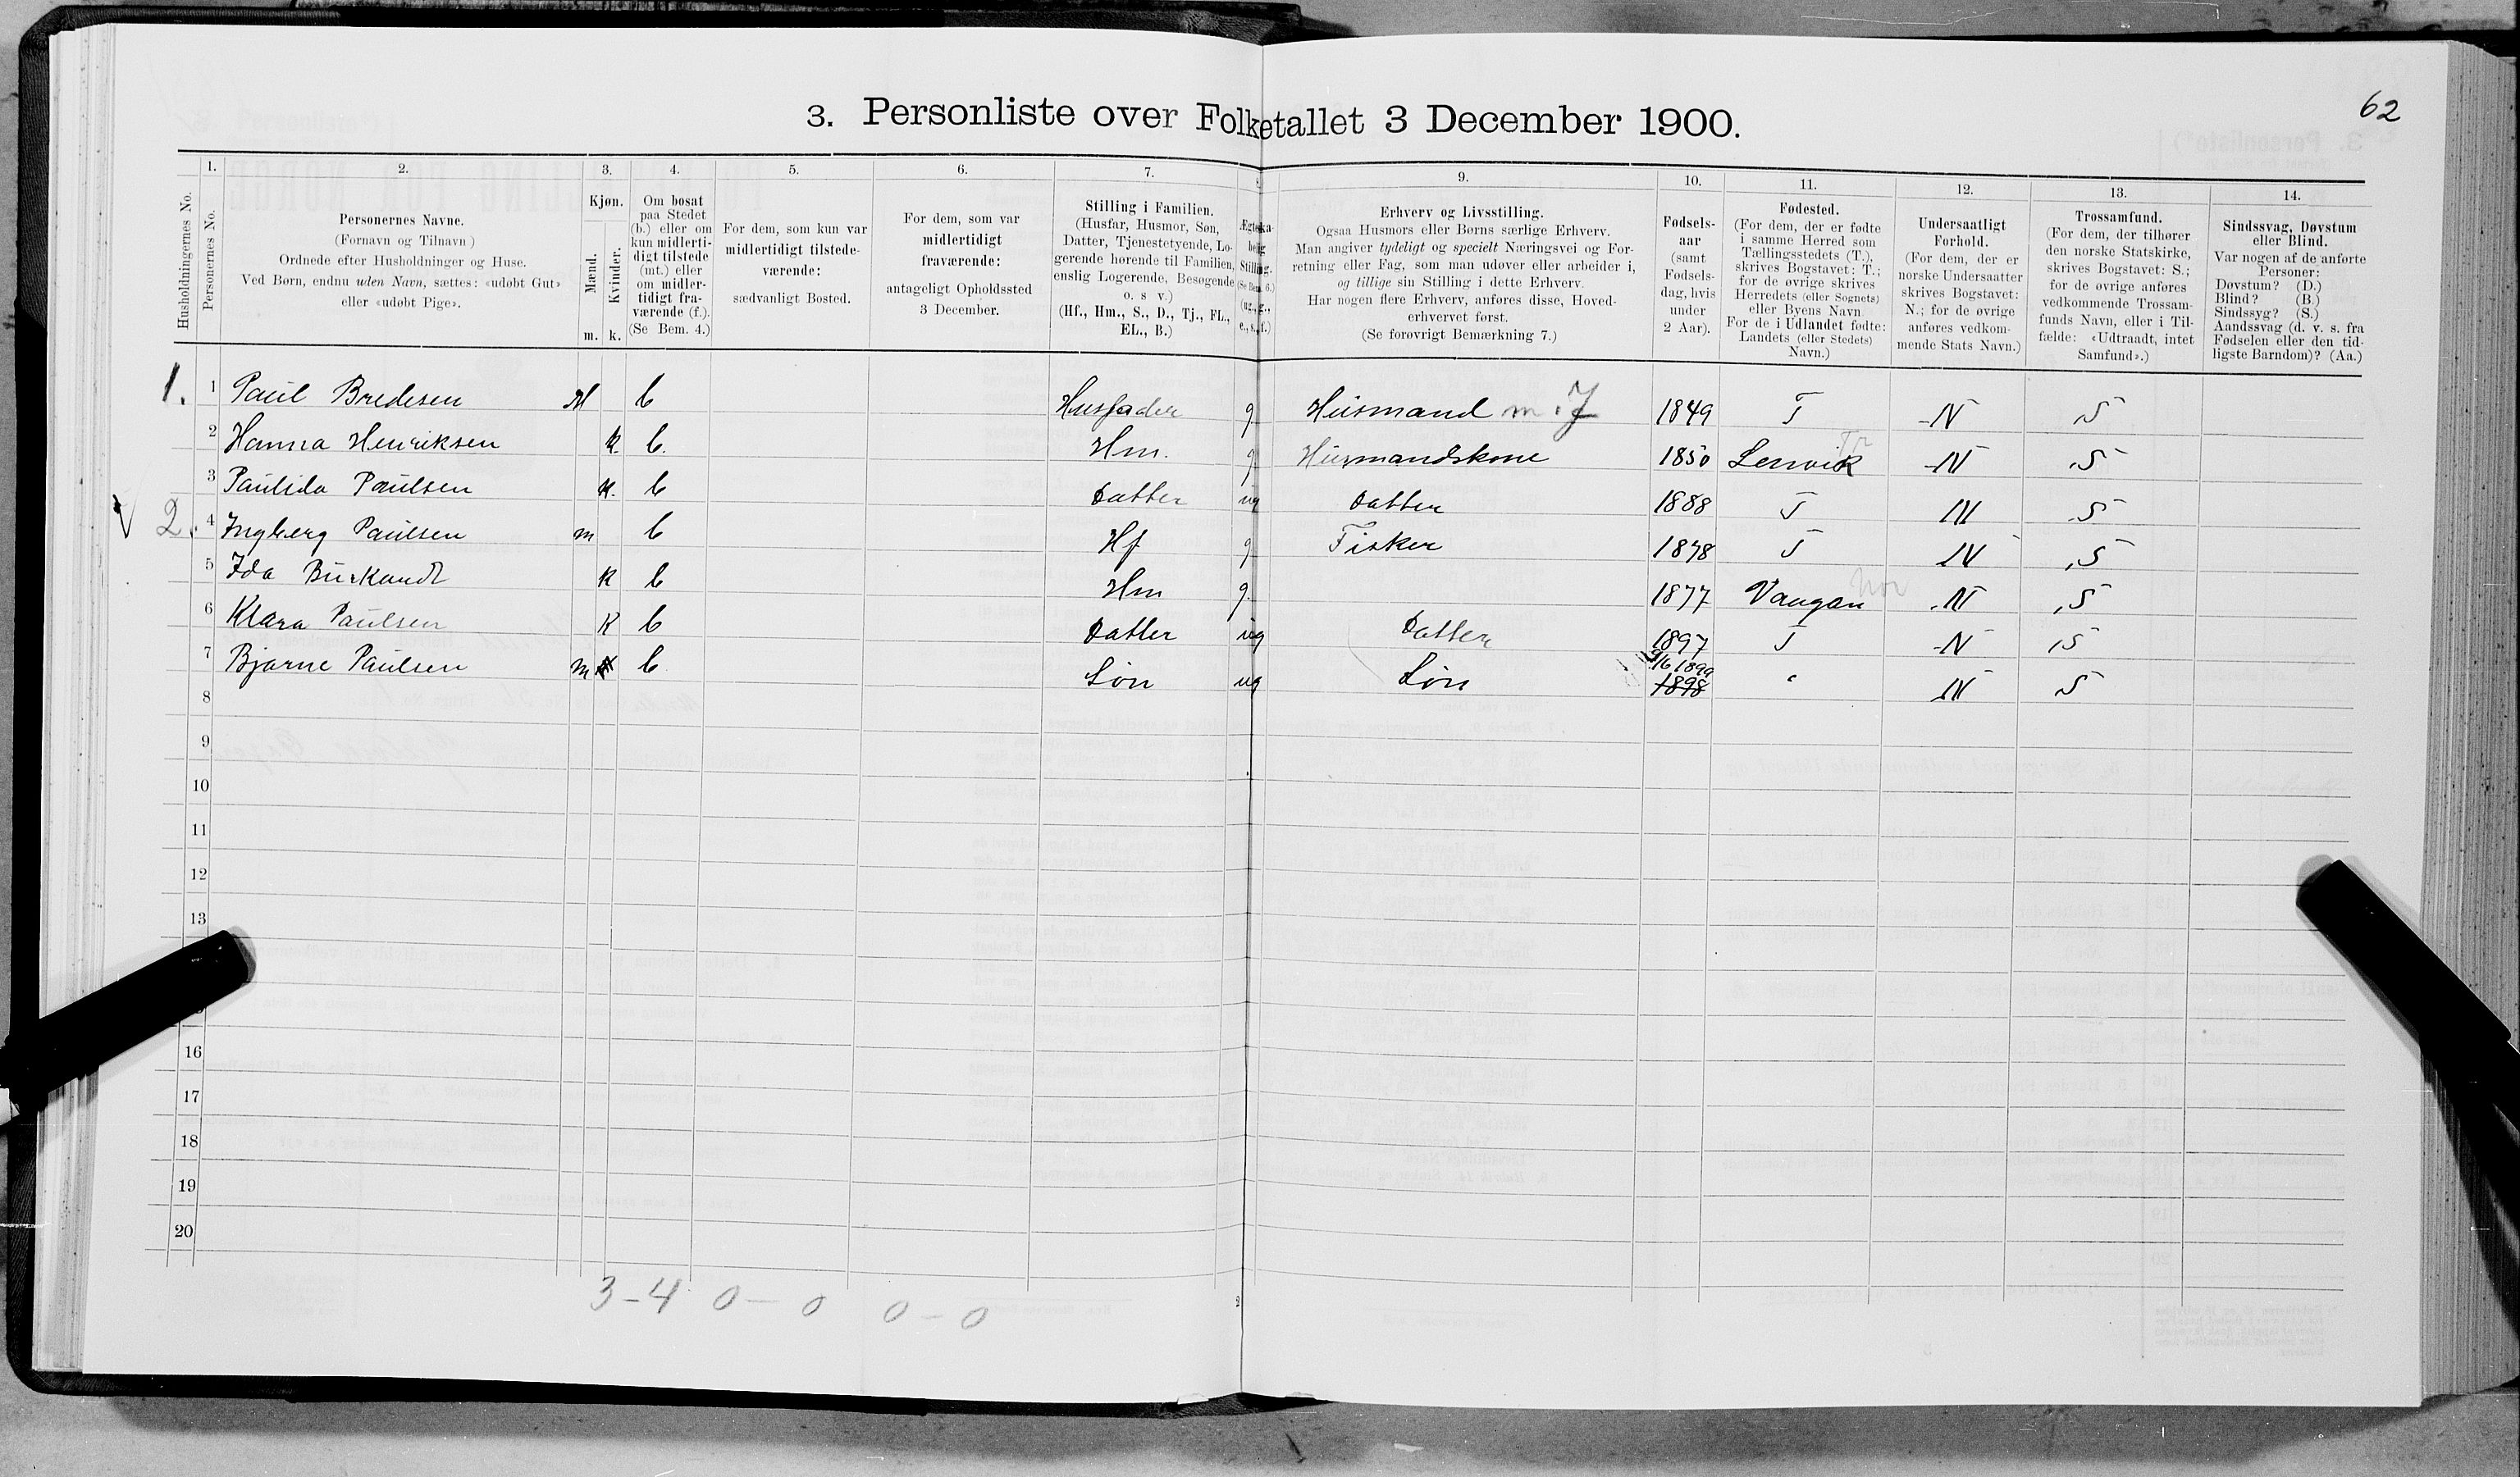 62
3. Personliste over Folketallet 3 December 1900.
Husholdningernes No.
1.
Personernes No.
2.
Personernes Navne.
(Fornavn og Tilnavn)
Ordnede efter Husholdninger og Huse.
Ved Børn, endnu uden Navn, sættes: «udøbt Gut»
eller «udøbt Pige».
3.
Kjøn.
Mænd.
Kvinder.
m. k.
4.
Om bosat
paa Stedet
(b.) eller om
kun midlerti-
digt tilstede
(mt.) eller
om midler-
tidigt fra-
værende (f.).
(Se Bem. 4.)
5.
For dem, som kun var
midlertidigt tilstede-
værende:
sædvanligt Bosted.
6.
For dem, som var
midlertidigt
fraværende:
antageligt Opholdssted
3 December.
7.
Stilling i Familien.
(Husfar, Husmor, Søn,
Datter, Tjenestetyende, Lo-
gerende hørende til Familien,
enslig Logerende, Besøgende
o. s v.)
(Hf., Hm., S., D., Tj., FL.,
EL., B.)
Stilling.
(Se Bem. 6.)
(ug., g.,
e., s., f.)
9.
Erhverv og Livsstilling.
Ogsaa Husmors eller Børns særlige Erhverv.
Man angiver tydeligt og specielt Næringsvei og For-
retning eller Fag, som man udøver eller arbeider i,
og tillige sin Stilling i dette Erhverv.
Har nogen flere Erhverv, anføres disse, Hoved-
erhvervet først.
(Se forøvrigt Bemærkning 7.)
10.
Fødsels-
aar
(samt
Fødsels-
dag, hvis
under
2 Aar).
11.
Fødested.
(For dem, der er fødte
i samme Herred som
Tællingsstedets (T.),
skrives Bogstavet: T.;
for de øvrige skrives
Herredets (eller Sognets)
eller Byens Navn.
For de i Udlandet fødte:
Landets (eller Stedets)
Navn.)
12.
Undersaatligt
Forhold.
(For dem, der er
norske Undersaatter
skrives Bogstavet:
N.; for de øvrige
anføres vedkom-
mende Stats Navn.)
13.
Trossamfund.
(For dem, der tilhører
den norske Statskirke,
skrives Bogstavet: S.;
for de øvrige anføres
vedkommende Trossam-
funds Navn, eller i Til-
fælde: «Udtraadt, intet
Samfund».)
14.
Sindssvag, Døvstum
eller Blind.
Var nogen af de anførte
Personer:
Døvstum? (D.)
Blind? (B.)
Sindssyg? (S.)
Aandssvag (d. v. s. fra
Fødselen eller den tid-
ligste Barndom)? (Aa.)
1. 1 Paul Bredesen M b Husfader g Husmand m. F 1849 T N S
2 Hanna Henriksen k. b. Hm. g Husmandskone 1850 Lenvik Tr N S
3 Paulida Paulsen k. b Datter ug Datter 1888 T N S
V 2. 4 Ingberg Paulsen m b Hf g Fisker 1878 T N S
5 Ida Burkandt k b Hm g. 1877 Vaagan Nor N S
6 Klara Paulsen K b Datter ug Datter 1897 T N S
7 Bjarne Paulsen m k b Søn ug Søn 9/6 1899 1898 " N S
8
9
10
11
12
13
16
17
18
19
20
3-4 0-0 0-0